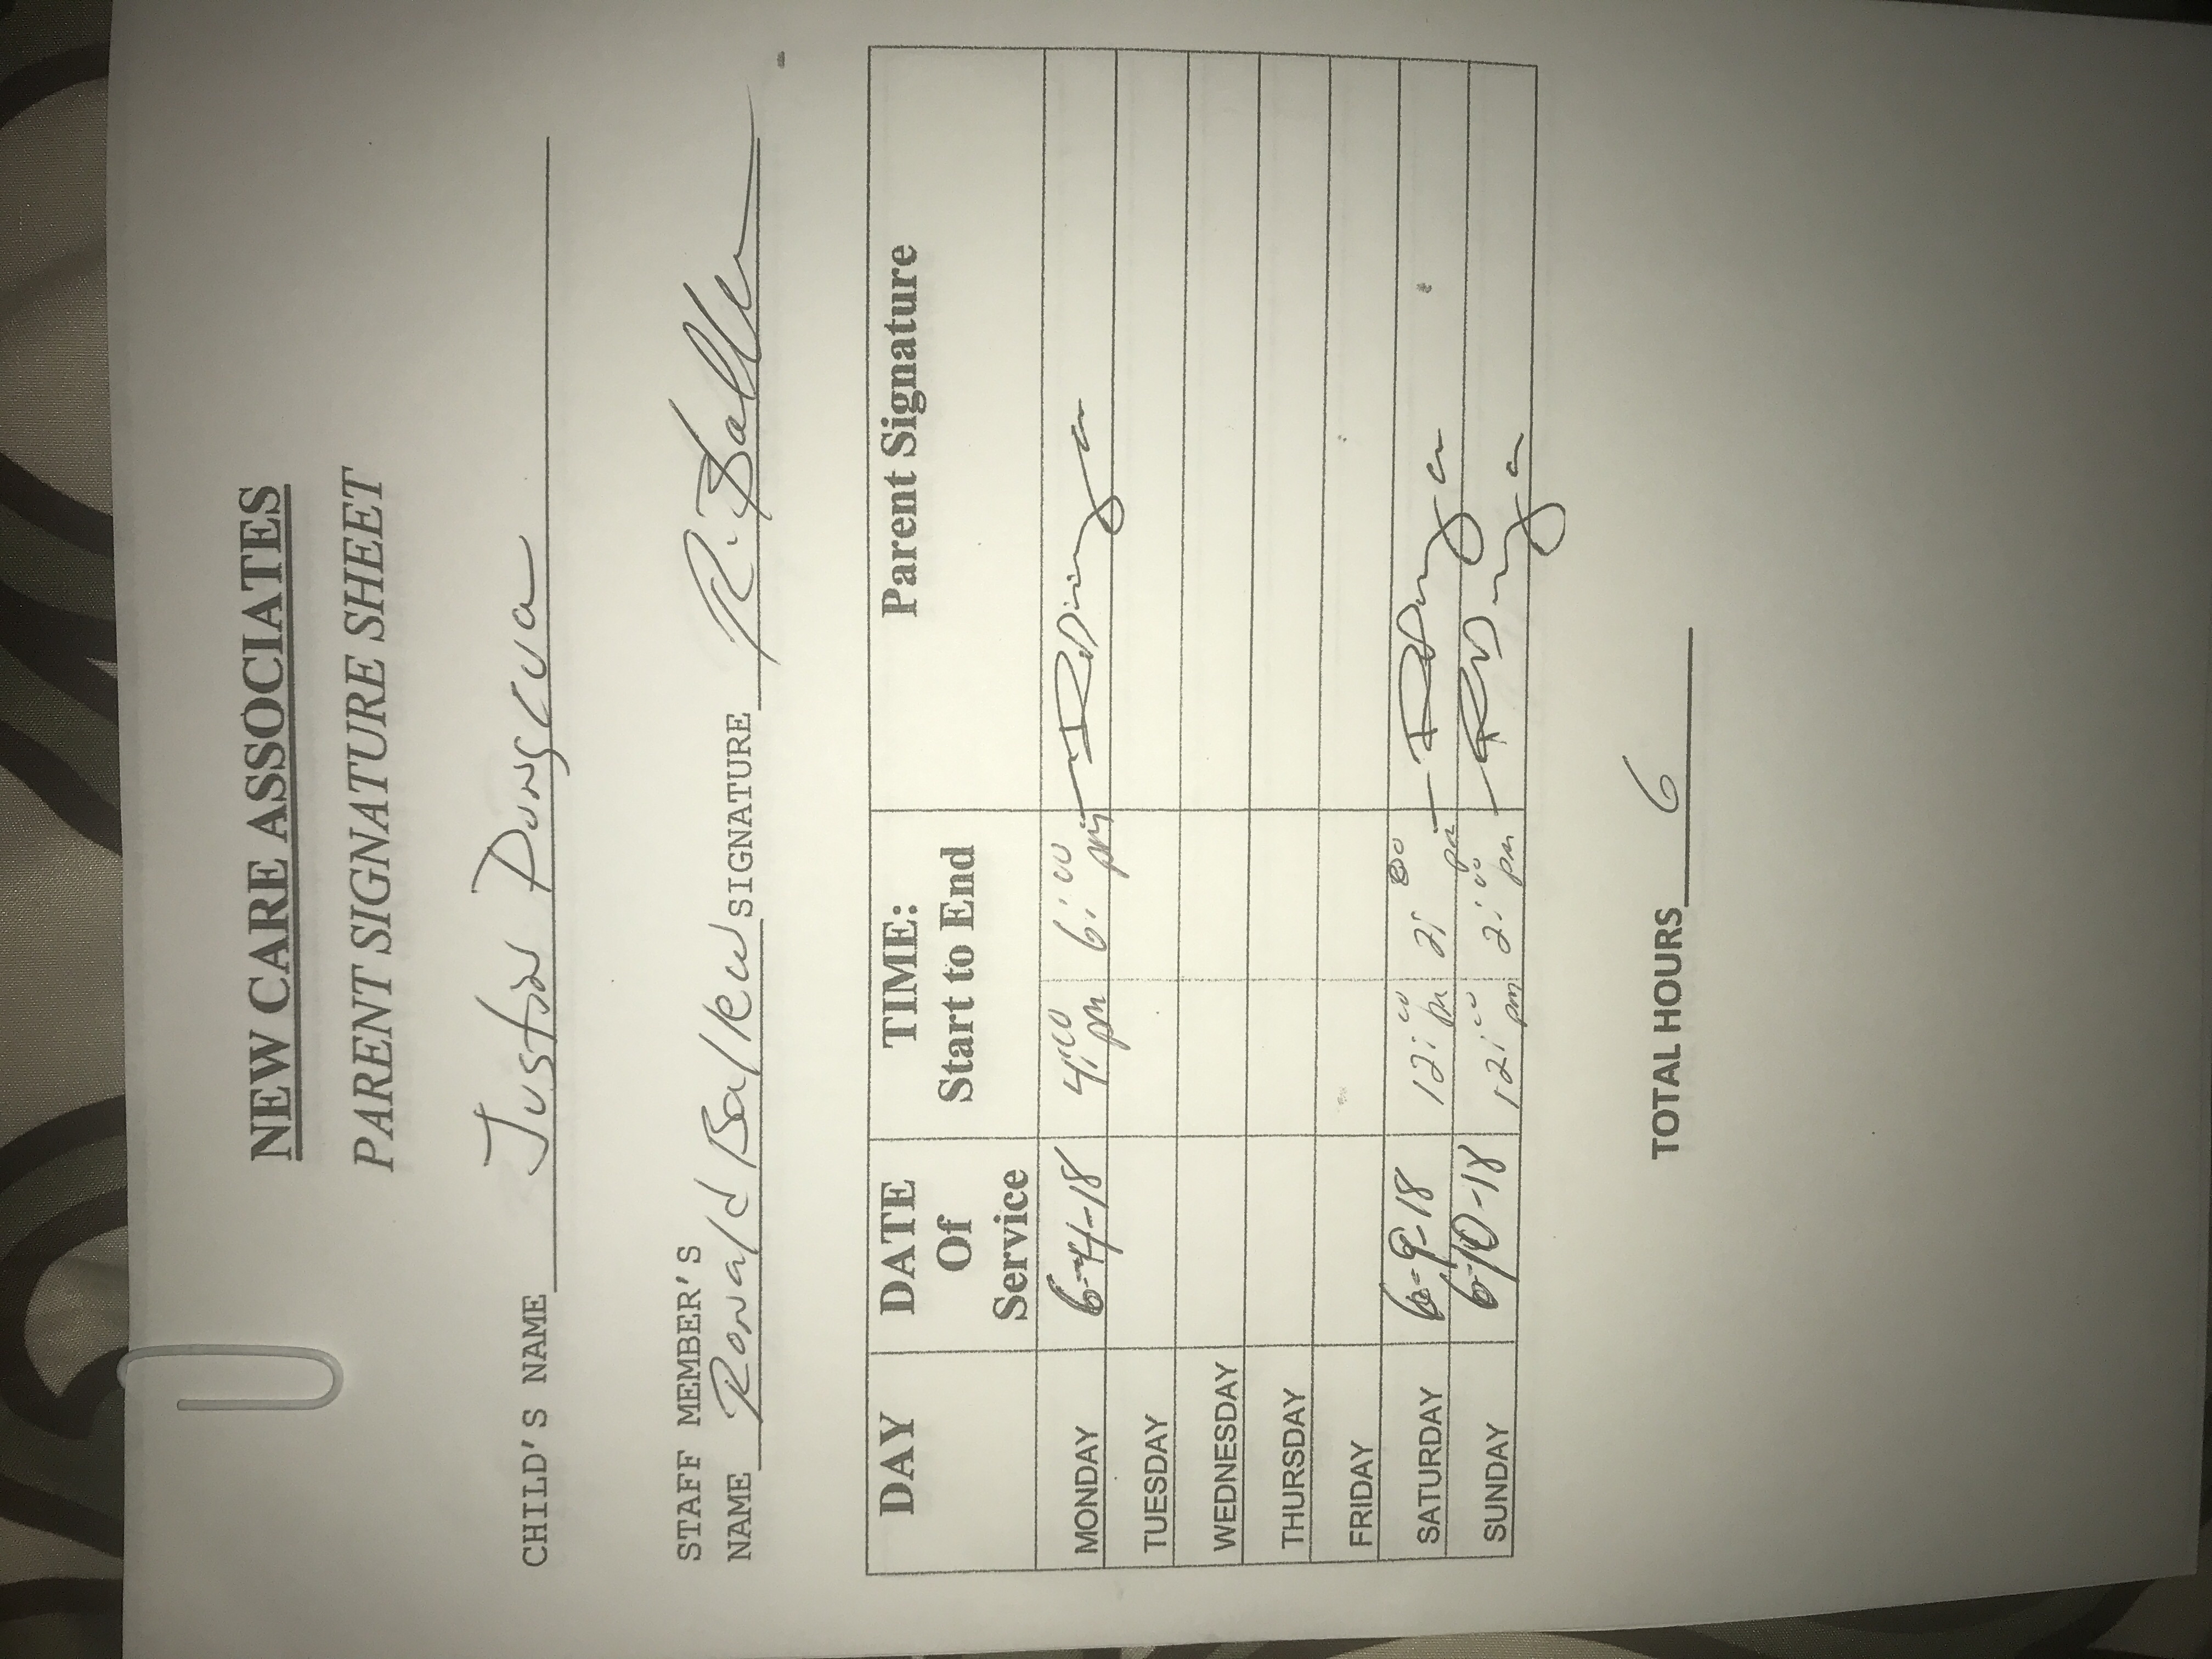 NEW CARE ASSOCIATES
PARENT SIGNATURE SHEET
CHILD'S NAME Justin
STAFF MEMBER'S
NAME Ronald Ballew SIGNATURE R. Ballew
DAY DATE Of Service TIME: Start to End Parent Signature
MONDAY 6-4-18 4:00 pm 6:00 pm
TUESDAY
WEDNESDAY
THURSDAY
FRIDAY
SATURDAY 6-9-18 12:00 pm 2:00 pm
SUNDAY 6-10-18 12:00 pm 2:00 pm
TOTAL HOURS 6